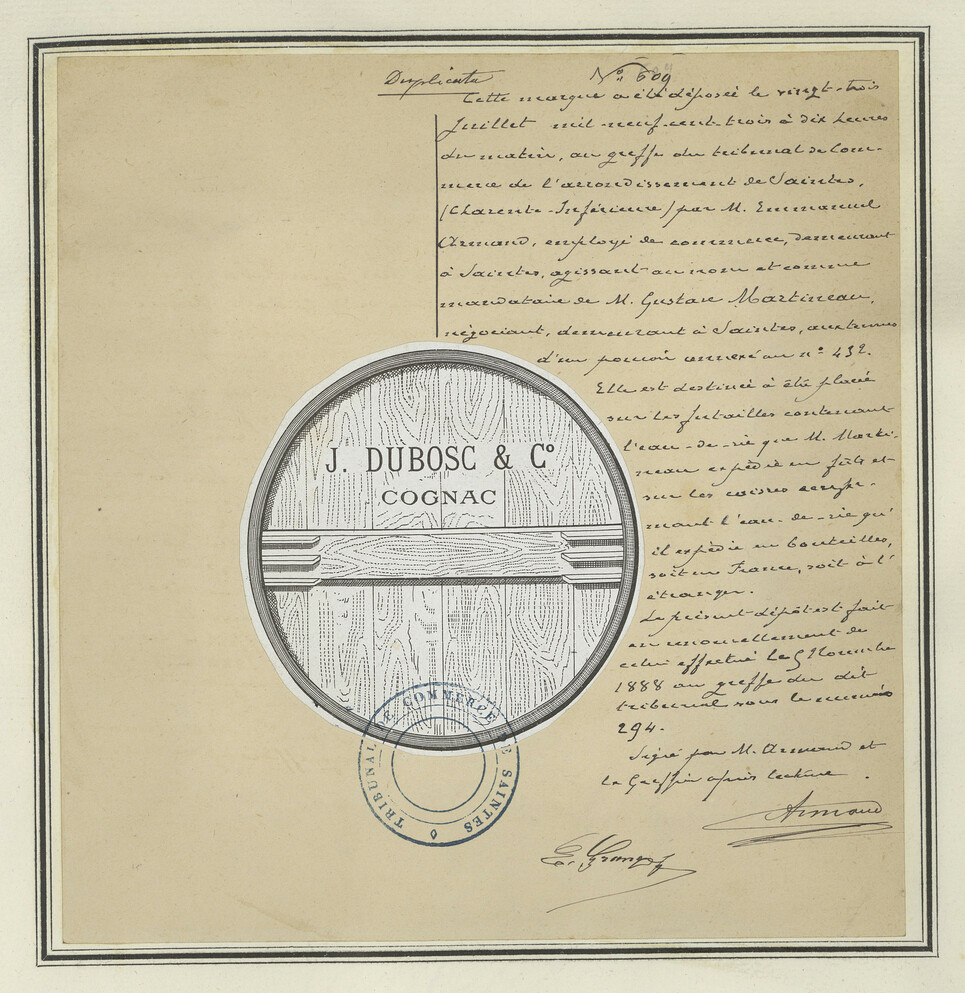 Duplicata
N° 609
Cette marque a été déposée le vingt-trois
Juillet mil-neuf-cent-trois à dix heures
du matin, au greffe du tribunal de Com-
merce de l'arrondissement de Saintes,
(Charente-Inférieure) par M. Emmanuel
Armand, employé de commerce, demeurant
à Saintes, agissant au nom et comme
mandataire de M. Gustave Martineau,
négociant, demeurant à Saintes, aux termes
d'un pouvoir annexé au n° 432.
Elle est destinée à être placée
sur les futailles contenant
l'eau-de-vie que M. Marti-
neau expédie en fûts et
sur les caisses renfer-
mant l'eau-de-vie qu'
il expédie en bouteilles,
soit en France, soit à l'
étranger.
Le présent dépôt est fait
en renouvellement de
celui effectué le 9 Novembre
1888 au greffe du dit
tribunal sous le numéro
294.
Signé par M. Armand et
le Greffier après lecture.
Armand
J. DUBOSC & C°
COGNAC
TRIBUNAL DE COMMERCE DE SAINTES